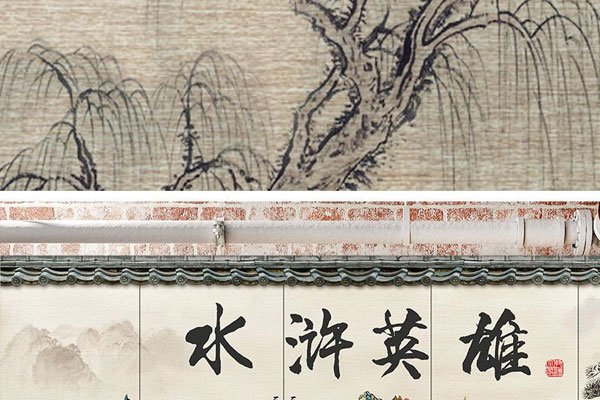 水浒英雄